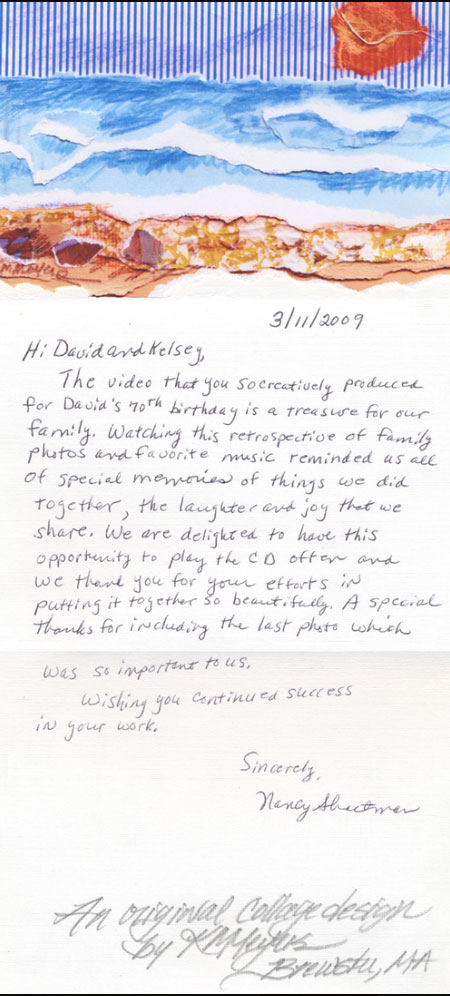 MMeyers
3/11/2009
Hi David and Kelsey,
The video that you so creatively produced
for David's 70th birthday is a treasure for our
family. Watching this retrospective of family
photos and favorite music reminded us all
of special memories of things we did
together, the laughter and joy that we
share. We are delighted to have this
opportunity to play the CD often and
we thank you for your efforts in
putting it together so beautifully. A special
thanks for including the last photo which
was so important to us.
Wishing you continued success
in your work.
Sincerely,
Nancy
An original Collage design
by KMMeyers
Brewster, MA